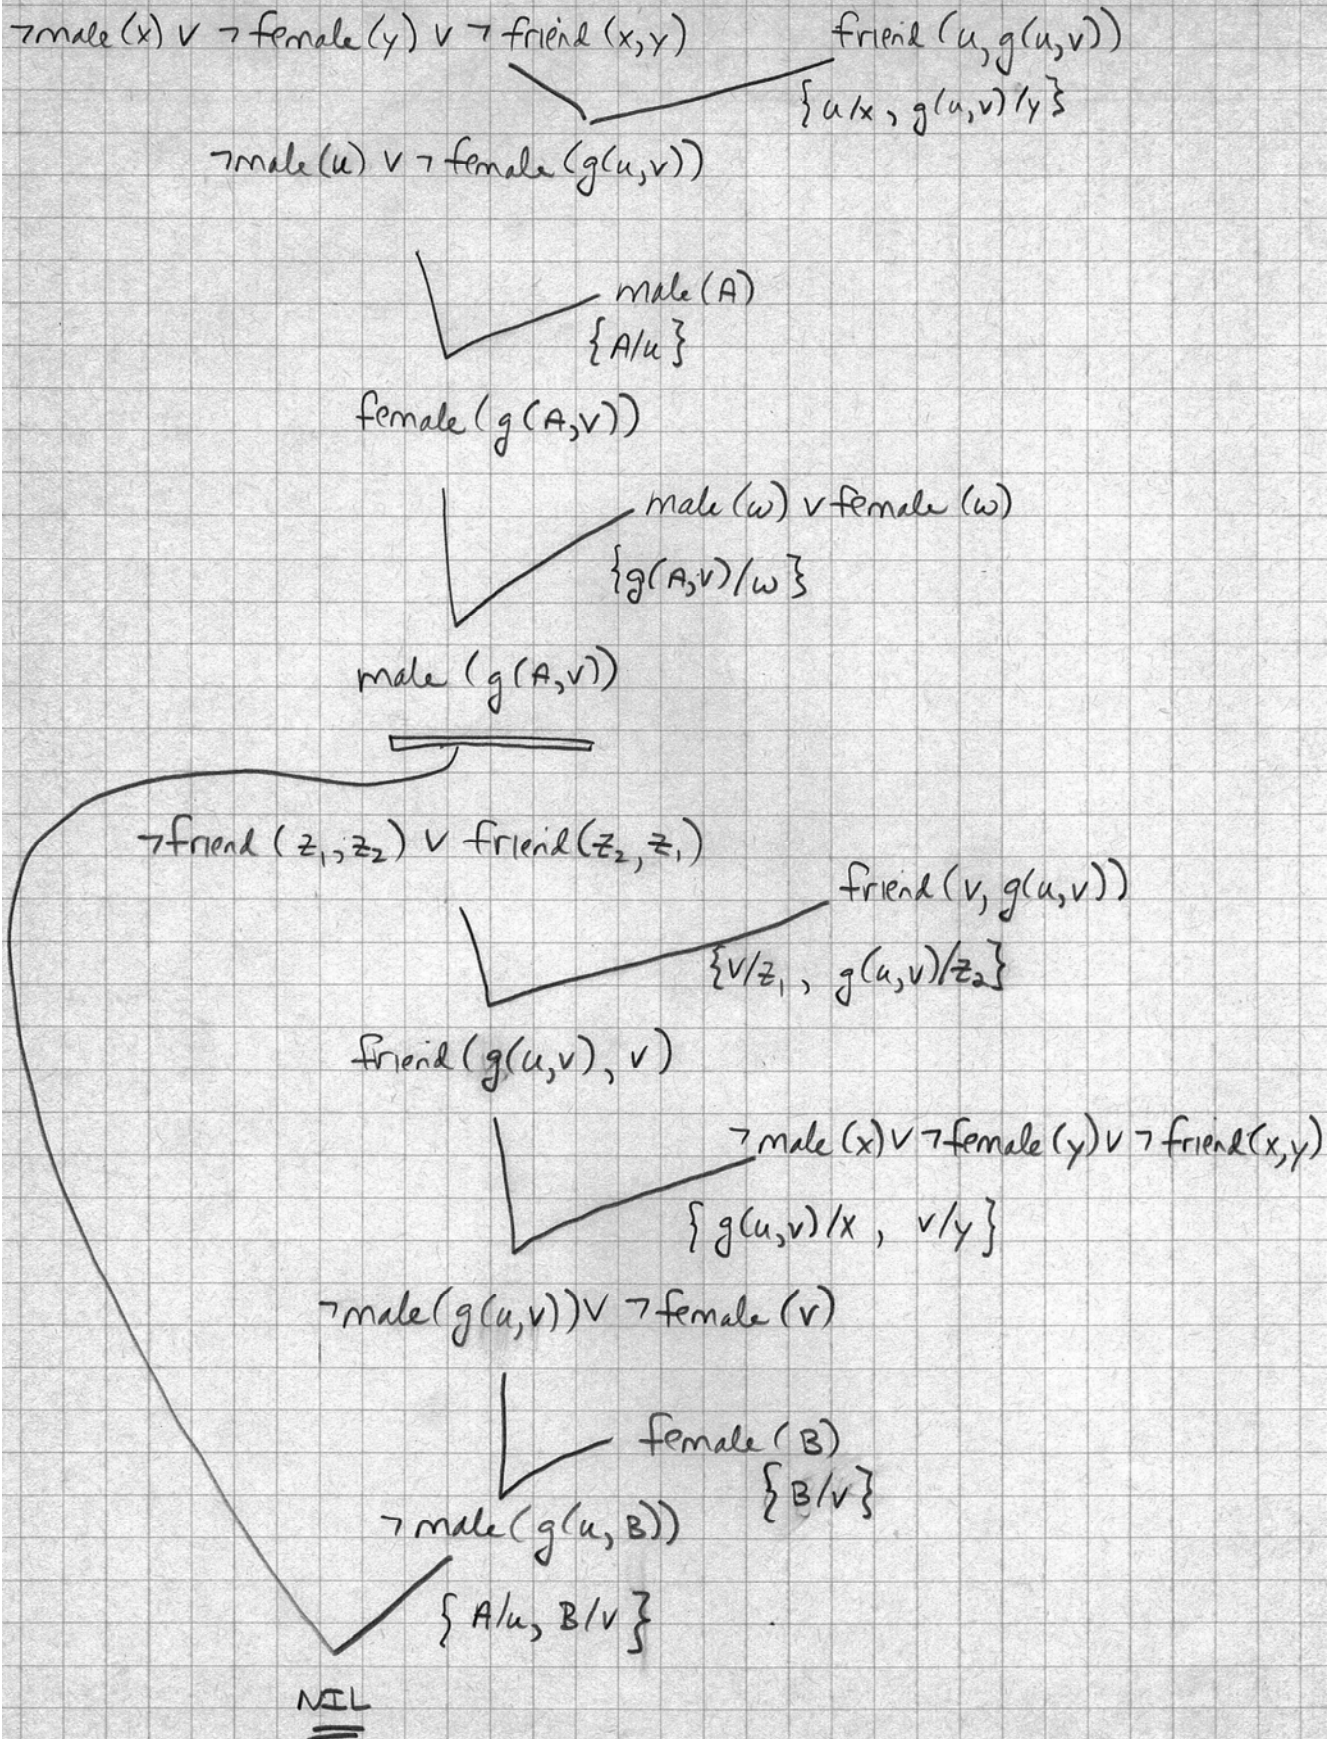 ¬male(x) ∨ ¬female(y) ∨ ¬friend(x,y) friend(u, g(u,v))
{u/x, g(u,v)/y}
¬male(u) ∨ ¬female(g(u,v))
male(A)
{A/u}
female(g(A,v))
male(w) ∨ female(w)
{g(A,v)/w}
male(g(A,v))
¬friend(z₁,z₂) ∨ friend(z₂,z₁)
friend(v, g(u,v))
{v/z₁, g(u,v)/z₂}
friend(g(u,v), v)
¬male(x) ∨ ¬female(y) ∨ ¬friend(x,y)
{g(u,v)/x, v/y}
¬male(g(u,v)) ∨ ¬female(v)
female(B)
{B/v}
¬male(g(u,B))
{A/u, B/v}
NIL